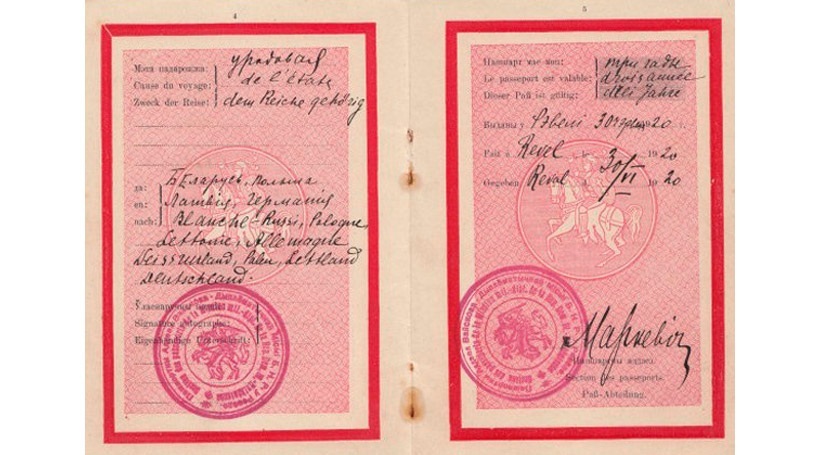 4
Мэта падарожжа: урадовая
Cause du voyage: de l'état
Zweck der Reise: dem Reiche gehörig
да: Беларусь, Польша
en: Латвія, Германія
nach: Blanche-Russi, Pologne,
Lettonie, Allemagne
Weissrurland, Polen, Lettland
Deutschland.
Уласнаручны
Signature autographe:
Eigenhändige Unterschrift:
5
Пашпарт мае моц: тры гады
Le passeport est valable: trois année
Dieser Paß ist gültig: drei Jahre
Выданы у Рэвелі 30 1920 г.
Fait à Revel, le 30/VI 1920
Gegeben Reval, 1920
Маркевіч
Пашпартны аддзел.
Section des passeports.
Paß-Abteilung.